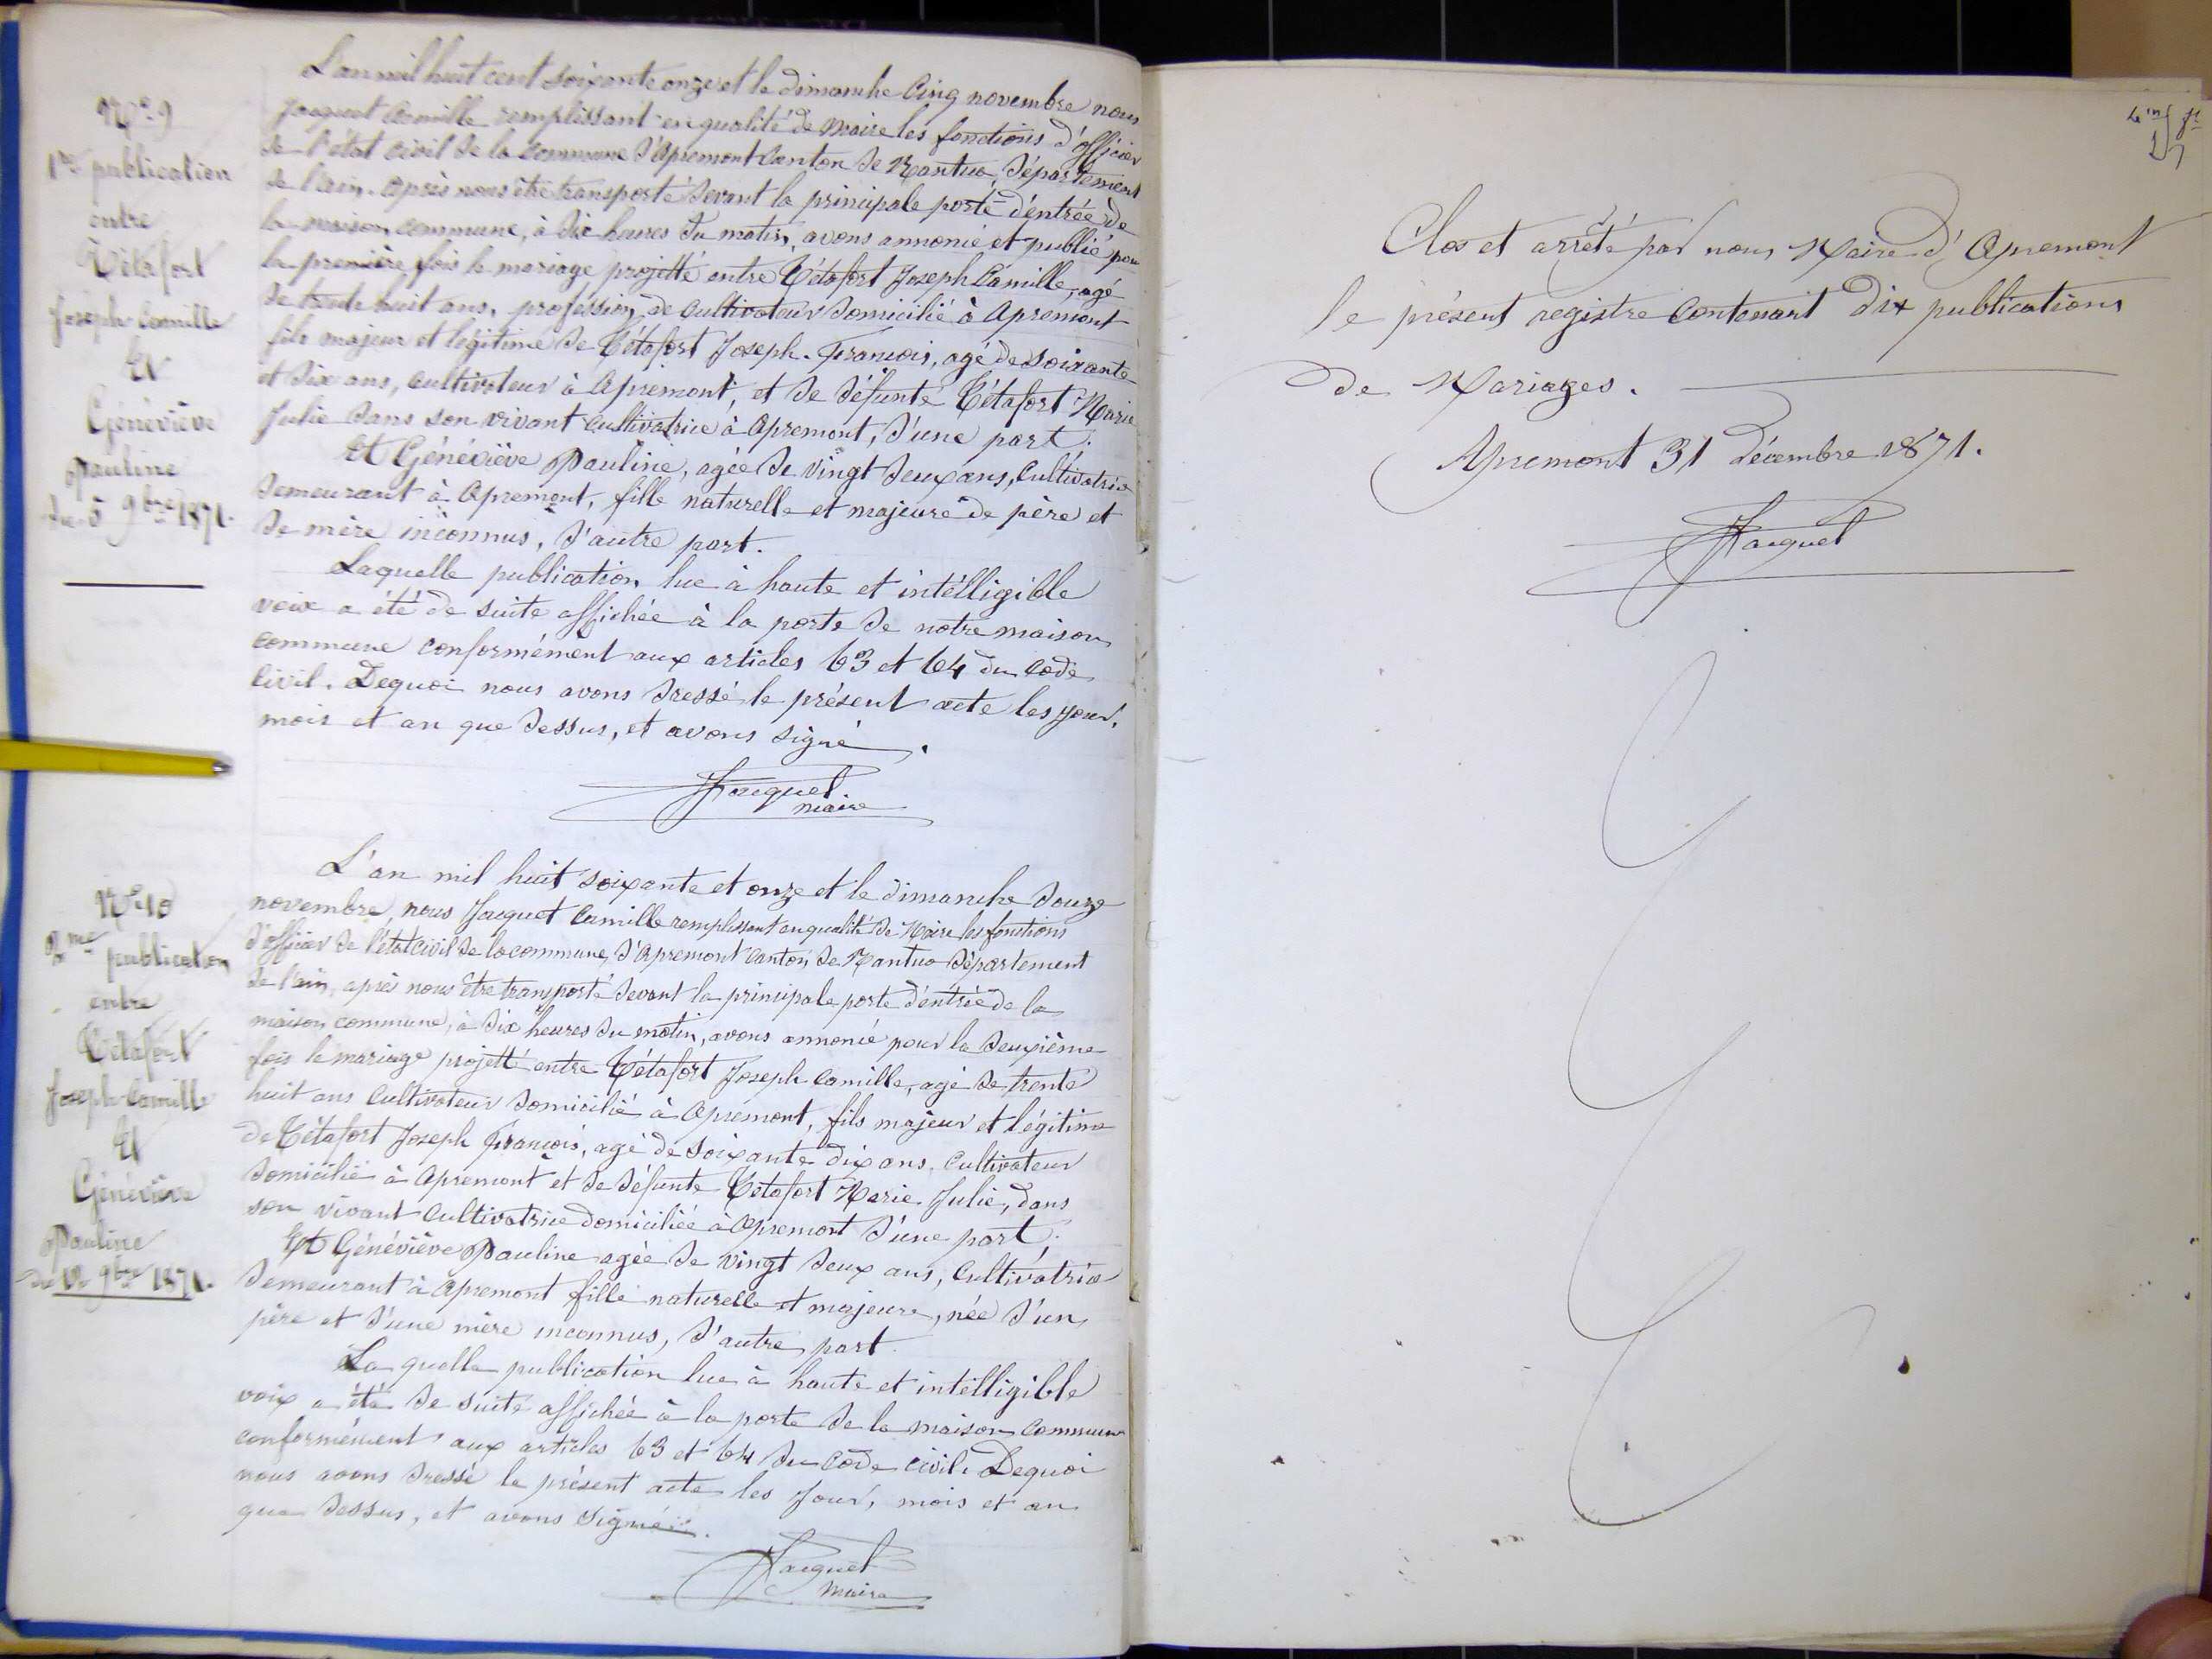 N° 9
1re publication
entre
Tétafort
Joseph Camille
Et
Généviève
Pauline
du 5 9bre 1871.
L'an mil huit cent soixante onze et le dimanche Cinq novembre nous
Jacquet Camille remplissant en qualité de Maire les fonctions d'officier
de l'état civil de la commune d'Apremont Canton de Nantua, département
de l'ain. Après nous être transporté devant la principale porte d'entrée de
la maison commune, à dix heures du matin, avons annoncé et publié pour
la première fois le mariage projetté entre Tétafort Joseph Camille, agé
de trente huit ans, profession de cultivateur domicilié à Apremont
fils majeur et légitime de Tétafort Joseph-François, agé de soixante
et dix ans, cultivateur à Apremont, et de défunte Tétafort Marie
Julie dans son vivant cultivatrice à Apremont, d'une part.
Et Généviève Pauline, agée de vingt deux ans, Cultivatrice
demeurant à Apremont, fille naturelle et majeure de père et
de mère inconnus, d'autre part.
Laquelle publication lue à haute et intélligible
voix a été de suite affichée à la porte de notre maison
commune conformément aux articles 63 et 64 du Code
Civil. Dequoi nous avons dressé le présent acte les jour,
mois et an que dessus, et avons signé.
Jacquet
maire
N° 10
2me publication
entre
Tétafort
Joseph Camille
Et
Généviève
Pauline
du 12 9bre 1871.
L'an mil huit soixante et onze et le dimanche douze
novembre, nous Jacquet Camille remplissant en qualité de Maire les fonctions
d'officier de l'état civil de la commune d'Apremont Canton de Nantua Département
de l'ain, après nous être transporté devant la principale porte d'entrée de la
maison commune, à dix heures du matin, avons annoncé pour la deuxième
fois le mariage projetté entre Tétafort Joseph Camille, agé de trente
huit ans Cultivateur domicilié à Apremont, fils majeur et légitime
de Tétafort Joseph François, agé de soixante dix ans, Cultivateur
domicilié à Apremont et de défunte Tétafort Marie Julie, dans
son vivant Cultivatrice domiciliée à Apremont d'une part.
Et Généviève Pauline agée de vingt deux ans, Cultivatrice
demeurant à Apremont fille naturelle et majeure, née d'un
père et d'une mère inconnus, d'autre part.
La quelle publication lue à haute et intélligible
voix a été de suite affichée à la porte de la maison commune
conformément aux articles 63 et 64 du Code civil. Dequoi
nous avons dressé le présent acte les Jour, mois et an
que dessus, et avons signé.
Jacquet
Maire
Clos et arrêté par nous Maire d'Apremont
le présent registre Contenant dix publications
de Mariages.
Apremont 31 décembre 1871.
Jacquet